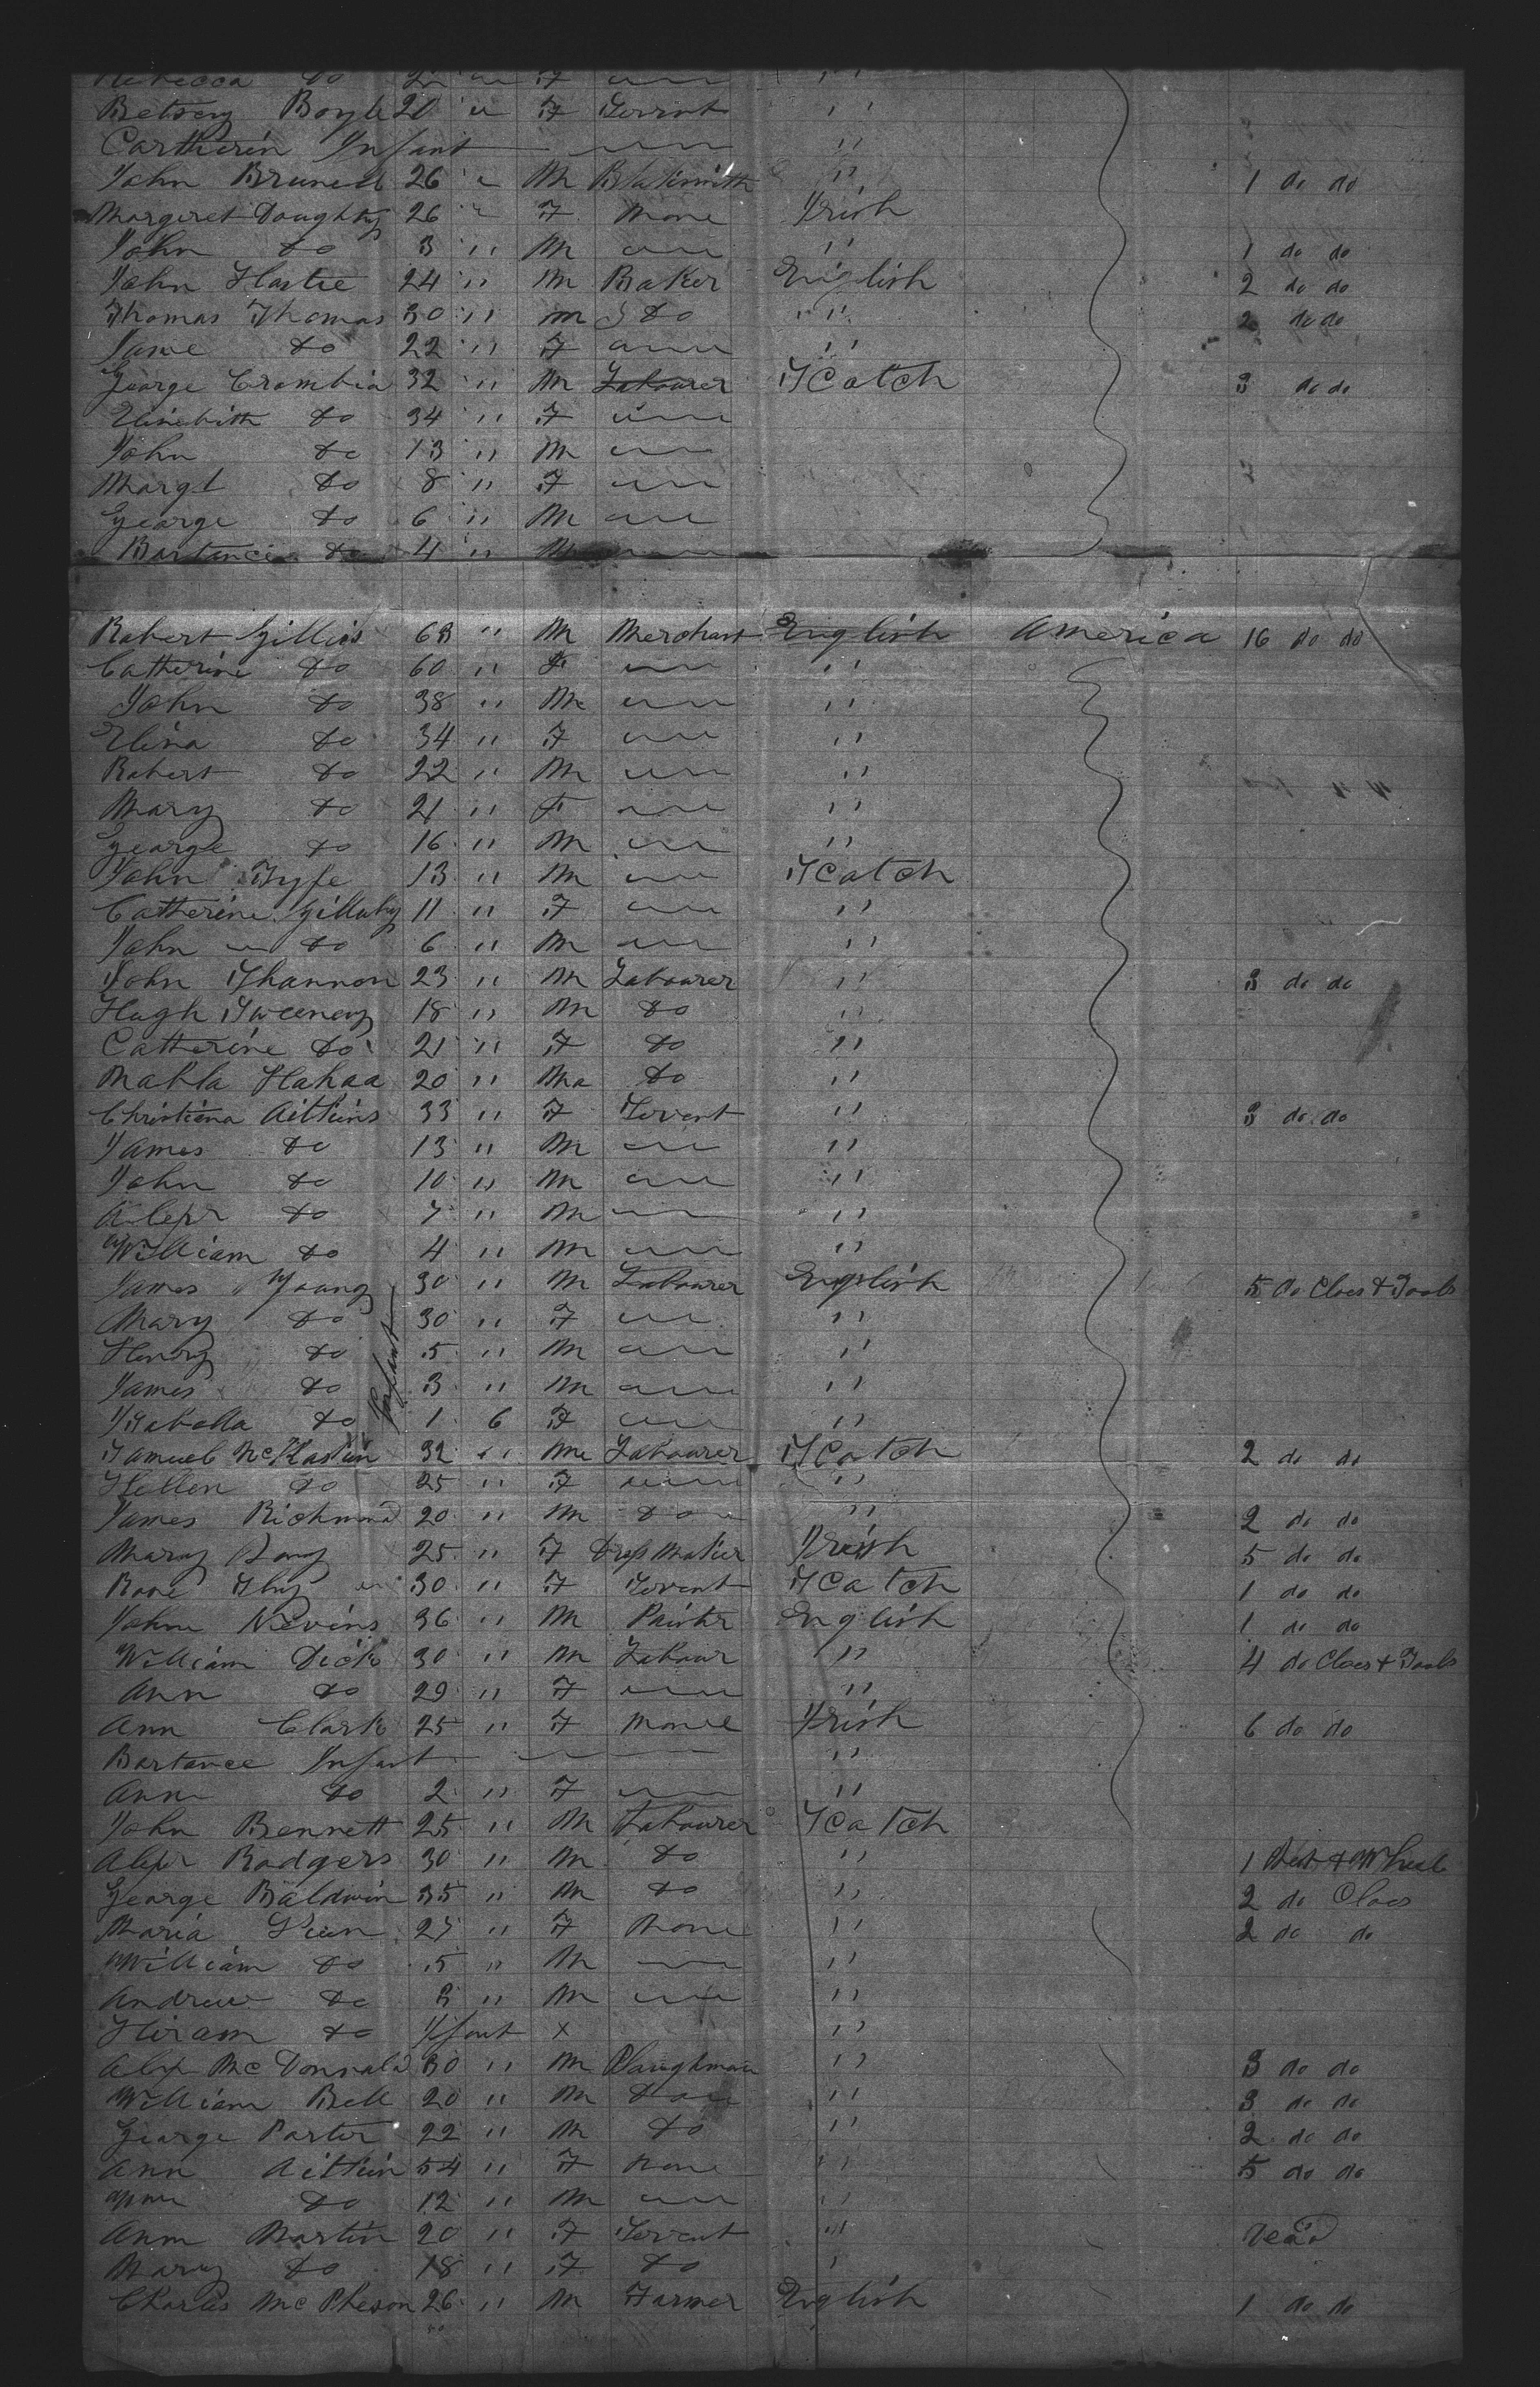 Rebecca do 22 " F
Betsey Boyle 20 " F Servnt "
Cartherin Infant "
John Brunell 26 " M Blaksmith " 1 do do
Margeret Doughty 26 " F None Irish
John do 3 " M " 1 do do
John Hastie 24 " M Baker English 2 do do
Thomas Thomas 30 " M do " 2 do do
Jane do 22 " F "
George Crombia 32 " M Labourer SCotch 3 do do
Elinebith do 34 " F
John do 13 " M
Margt do 8 " F
George do 6 " M
Bartance do 4 " M
Robert Gillies 63 " M Merchant English America 16 do do
Catherine do 60 " F "
John do 38 " M "
Elina do 34 " F "
Robert do 22 " M "
Mary do 21 " F "
George do 16 " M "
John Fyfe 13 " M SCotch
Catherine Gilluby 11 " F "
John do 6 " M "
John Shannon 23 " M Labourer " 3 do do
Hugh Sweeney 18 " M do "
Catherine do 21 " F do "
Mahla Hahaa 20 " Ma do "
Christiena Aitkins 33 " F Servent " 3 do do
James do 13 " M "
John do 10 " M "
Alexr do 7 " M "
William do 4 " M "
James Young 30 " M Labourer English 5 do Cloes & Tools
Mary do 30 " F "
Henry do 5 " M "
James do 3 " M "
Isabella do Infant 1 6 F "
Samuel McHaslin 32 " M Labourer SCotch 2 do do
Hellen do 25 " F "
James Richmond 20 " M do " 2 do do
Mary Long 25 " F Dress Maker Irish 5 do do
Rose 30 " F Servent SCotch 1 do do
John Nevins 36 " M Paintr English 1 do do
William Dick 30 " M Labour " 4 do Cloes & Tools
Ann do 29 " F "
Ann Clark 25 " F None Irish 6 do do
Bartance Infant "
Ann do 2 " F "
John Bennett 25 " M Labourer SCotch
Alexr Rodgers 30 " M do " 1 & Wheel
George Baldwin 35 " M do " 2 do Cloes
Maria 27 " F None " 2 do do
William do 5 " M "
Andrew do 3 " M "
Hiram do Infant x "
Alexr McDonnald 30 " M Plaughman " 3 do do
William Bell 20 " M do " 3 do do
George Porter 22 " M do " 2 do do
Ann Aitkin 54 " F None " 5 do do
do 12 " M "
Ann Martin 20 " F Servent "
Mary do 18 " F do "
Charles McPheson 26 " M Farmer English 1 do do